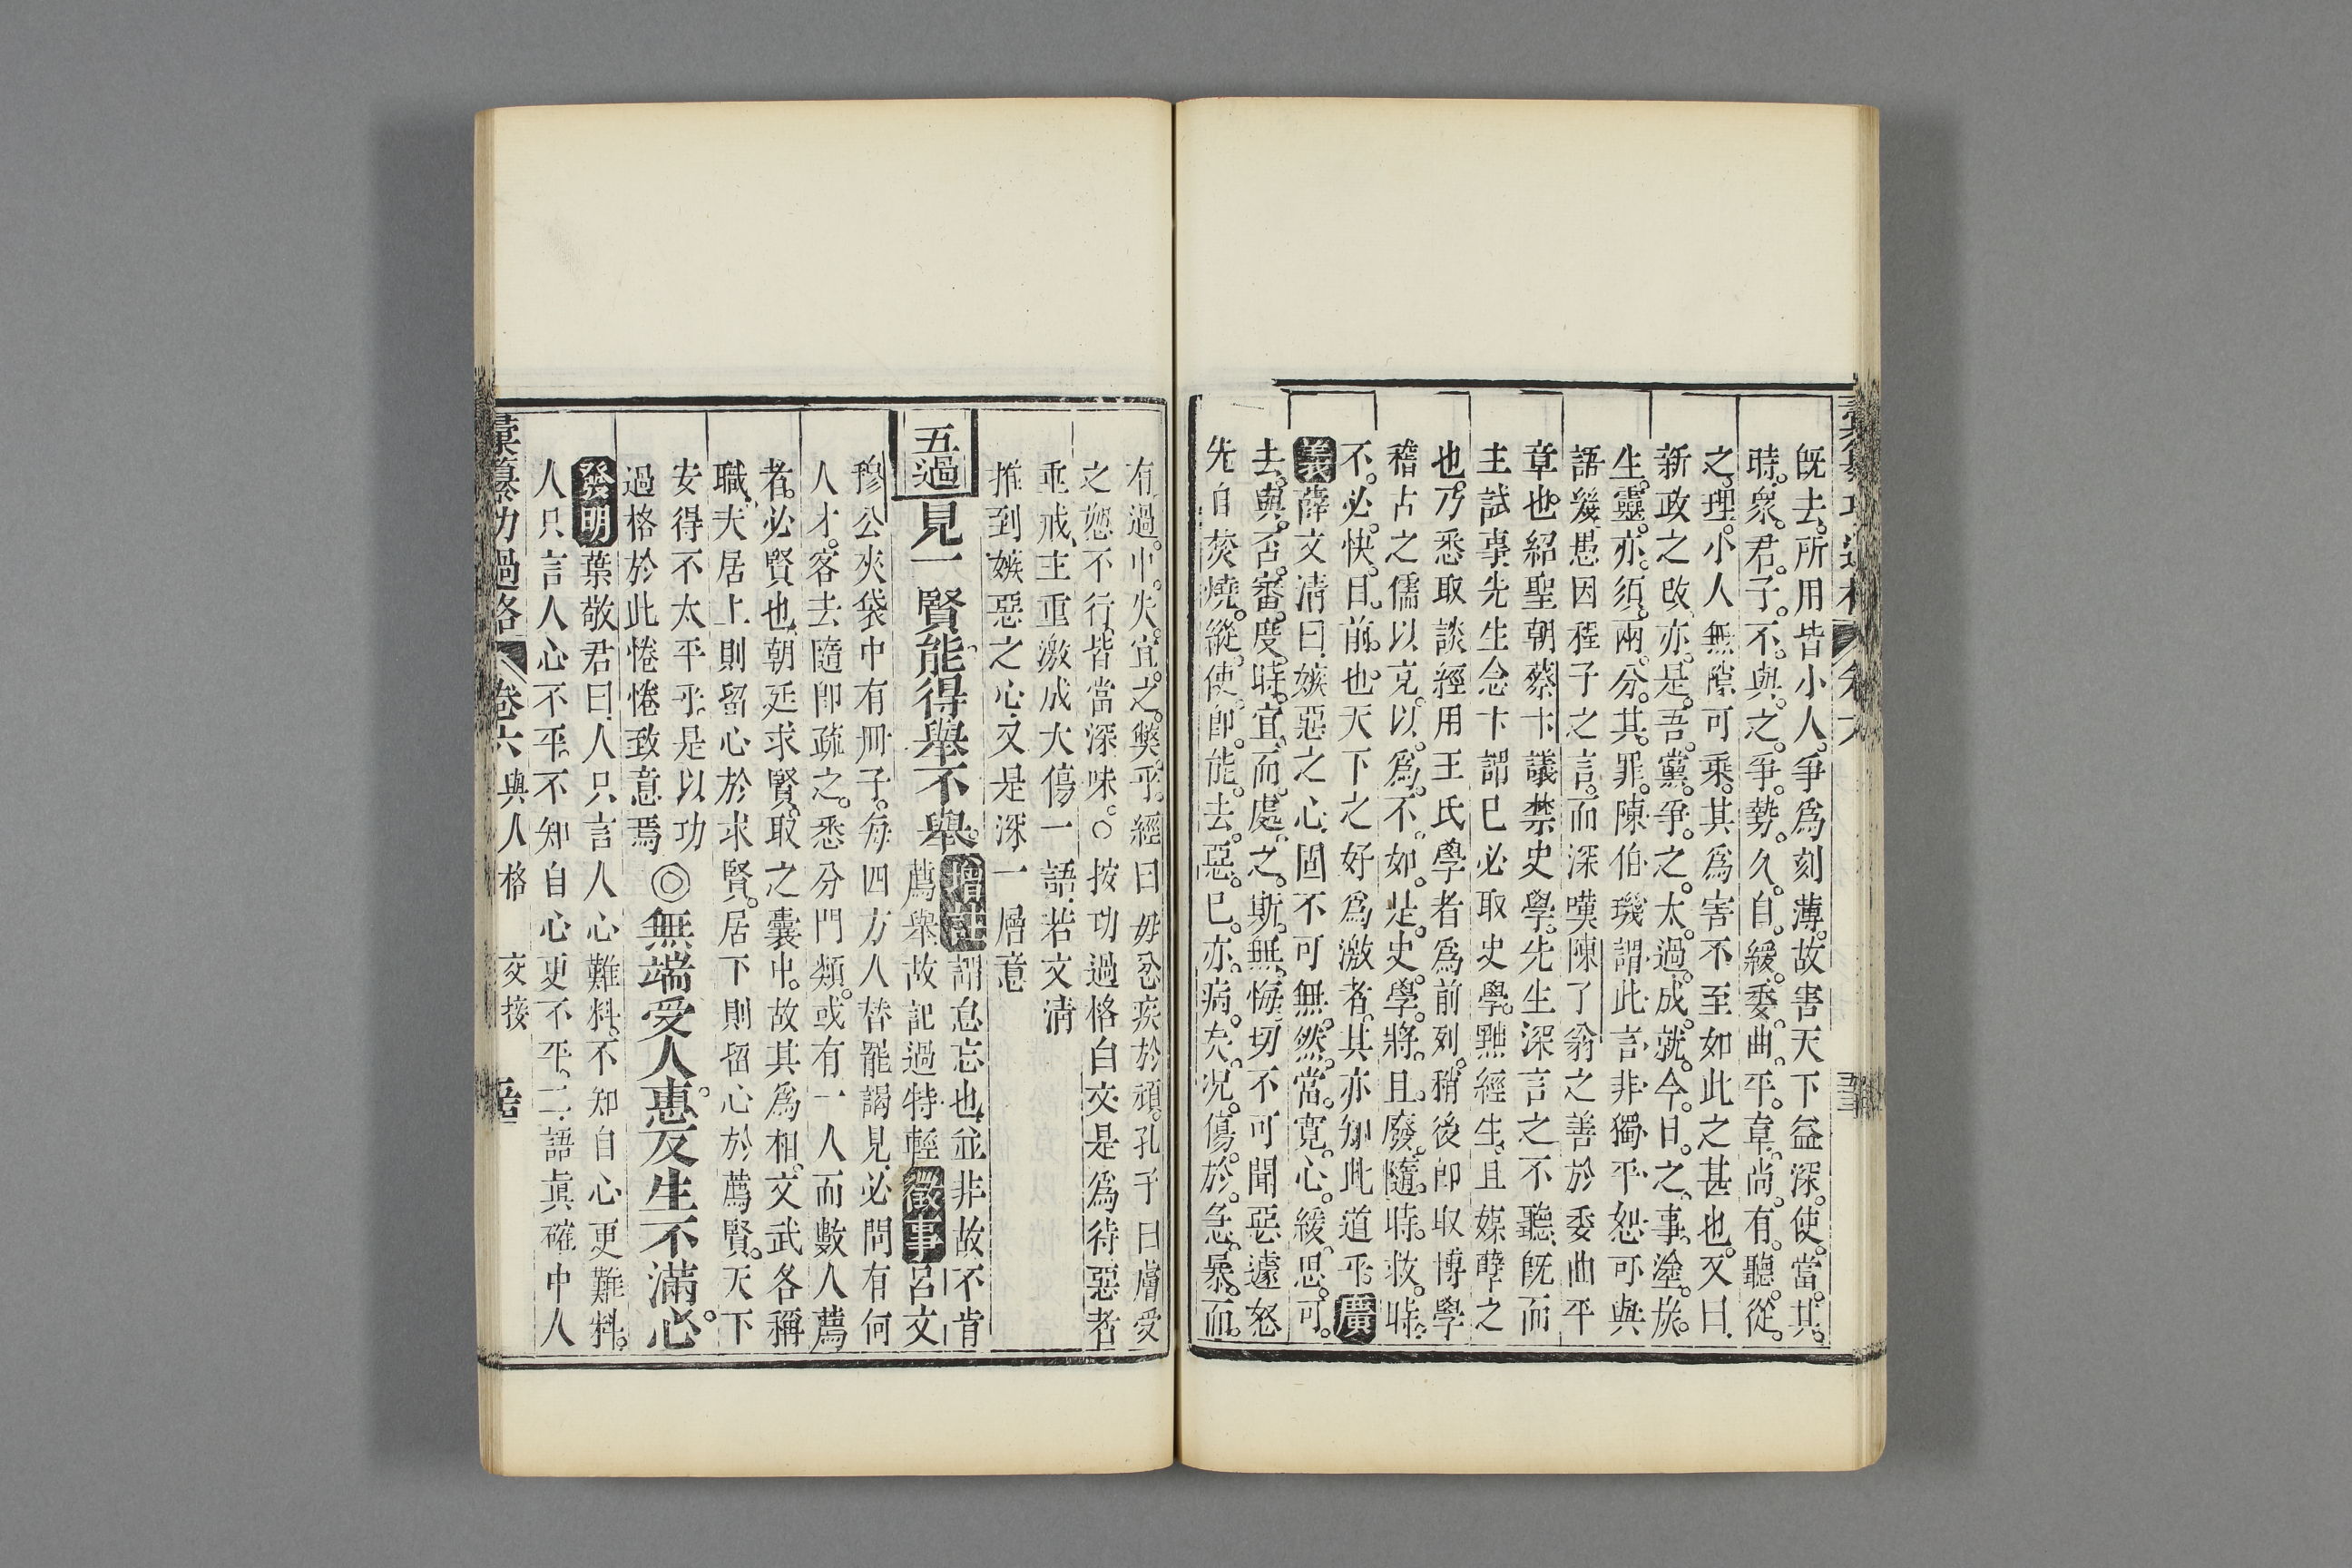 既去所用皆小人爭爲刻薄故害天下益深使當其
時衆君子不與之爭勢久自緩委曲平章尚有聽從
之理小人無隙可乘其爲害不至如此之甚也又曰
新政之改亦是吾黨爭之太過成就今日之事塗炭
生靈亦須兩分其罪陳伯璣謂此言非獨平恕可與
語幾愚因程子之言而深嘆陳了翁之善於委曲平
章也紹聖朝蔡卞議禁史學先生深言之不聽旣而
主試事先生念卞謂巳必取史學黜經生且媒孽之
也乃悉取談經用王氏學者爲前列稍後卽取博學
稽古之儒以克以爲不如是史學將且廢隨時救時
不必快目前也天下之好爲激者其亦知此道乎 廣
義 薛文淸曰嫉惡之心固不可無然當寬心緩思可
去與否審度時宜而處之斯無悔切不可聞惡遽怒
先自焚燒縱使卽能去惡巳亦病矣况傷於急暴而
有過中失宜之獘乎經曰毋忿疾於頑孔子曰膚受
之愬不行皆當深味○按功過格白交是爲待惡者
垂戒主重激成大傷一語若文淸
推到嫉惡之心又是深一層意
五過 見一賢能得舉不舉 增註 謂怠忘也並非故不肯
薦舉故記過特輕 徵事 呂文
穆公夾袋中有冊子每四方人替罷謁見必問有何
人才客去隨卽疏之悉分門類或有一人而數人薦
者必賢也朝廷求賢取之囊中故其爲相文武各稱
職夫居上則留心於求賢居下則留心於薦賢天下
安得不太平乎是以功
過格於此惓惓致意焉 ◎無端受人惠反生不滿心
發明 葉敬君曰人只言人心難料不知自心更難料
人只言人心不平不知自心更不平二語眞確中人
彙纂功過格 卷六 與人格 交接